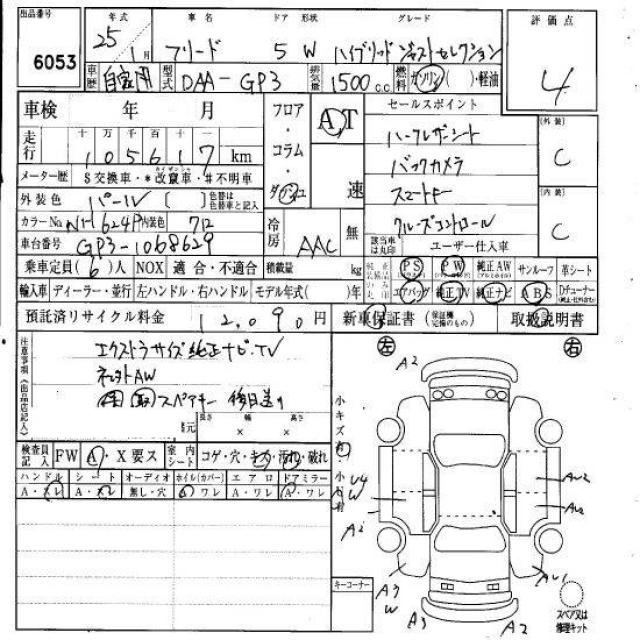 出品番号 年式 車名 ドア 形状 グレード 評価点
6053 25年 1月 フリード 5 W ハイブリッド ジャストセレクション 4
車歴 自家用 型式 DAA-GP3 排気量 1500cc 燃料 ガソリン・( )・軽油
車検 年 月 フロア・コラム・ダッシュ AT セールスポイント (外装)
走行 十 万 千 百 十 一 ハーフレザーシート C
105617km バックカメラ
メーター歴 $交換車・*改竄車・#不明車 スマートキー (内装)
外装色 パール ( ) 色替は色替車と記入 速 クルーズコントロール C
カラーNo. NH624P 内装色 712 冷房 AAC 無
車台番号 GP3-1068629 該当車は丸印 ユーザー仕入車
乗車定員(6)人 NOX 適合・不適合 積載量 kg 純正 PS PW 純正AW サンルーフ 革シート
輸入車 ディーラー・並行 左ハンドル・右ハンドル モデル年式( )年 エアバッグ 純正TV 純正ナビ ABS Dチューナー
預託済リサイクル料金 12,090円 新車保証書(保証継完備のもの) 取扱説明書
注意事項(出品店記入) エクストラサイズ純正ナビ・TV 左 右
社外AW
スペアキー 後日送り
長さ 幅 高さ
荷寸 × ×
検査員記入 FW A・X要ス 室内シート コゲ・穴・キズ・汚れ・破れ
ハンドル シート オーディオ ホイル(カバー) エアロ ドアミラー
A・スレ A・スレ 無し・穴 A・ワレ A・ワレ A・ワレ
小キズ有
小凹有
A2
U4
W
A2
AU2
AU2
A3
W
AU1
A2
A3
A2
キーコーナー
スペア又は修理キット